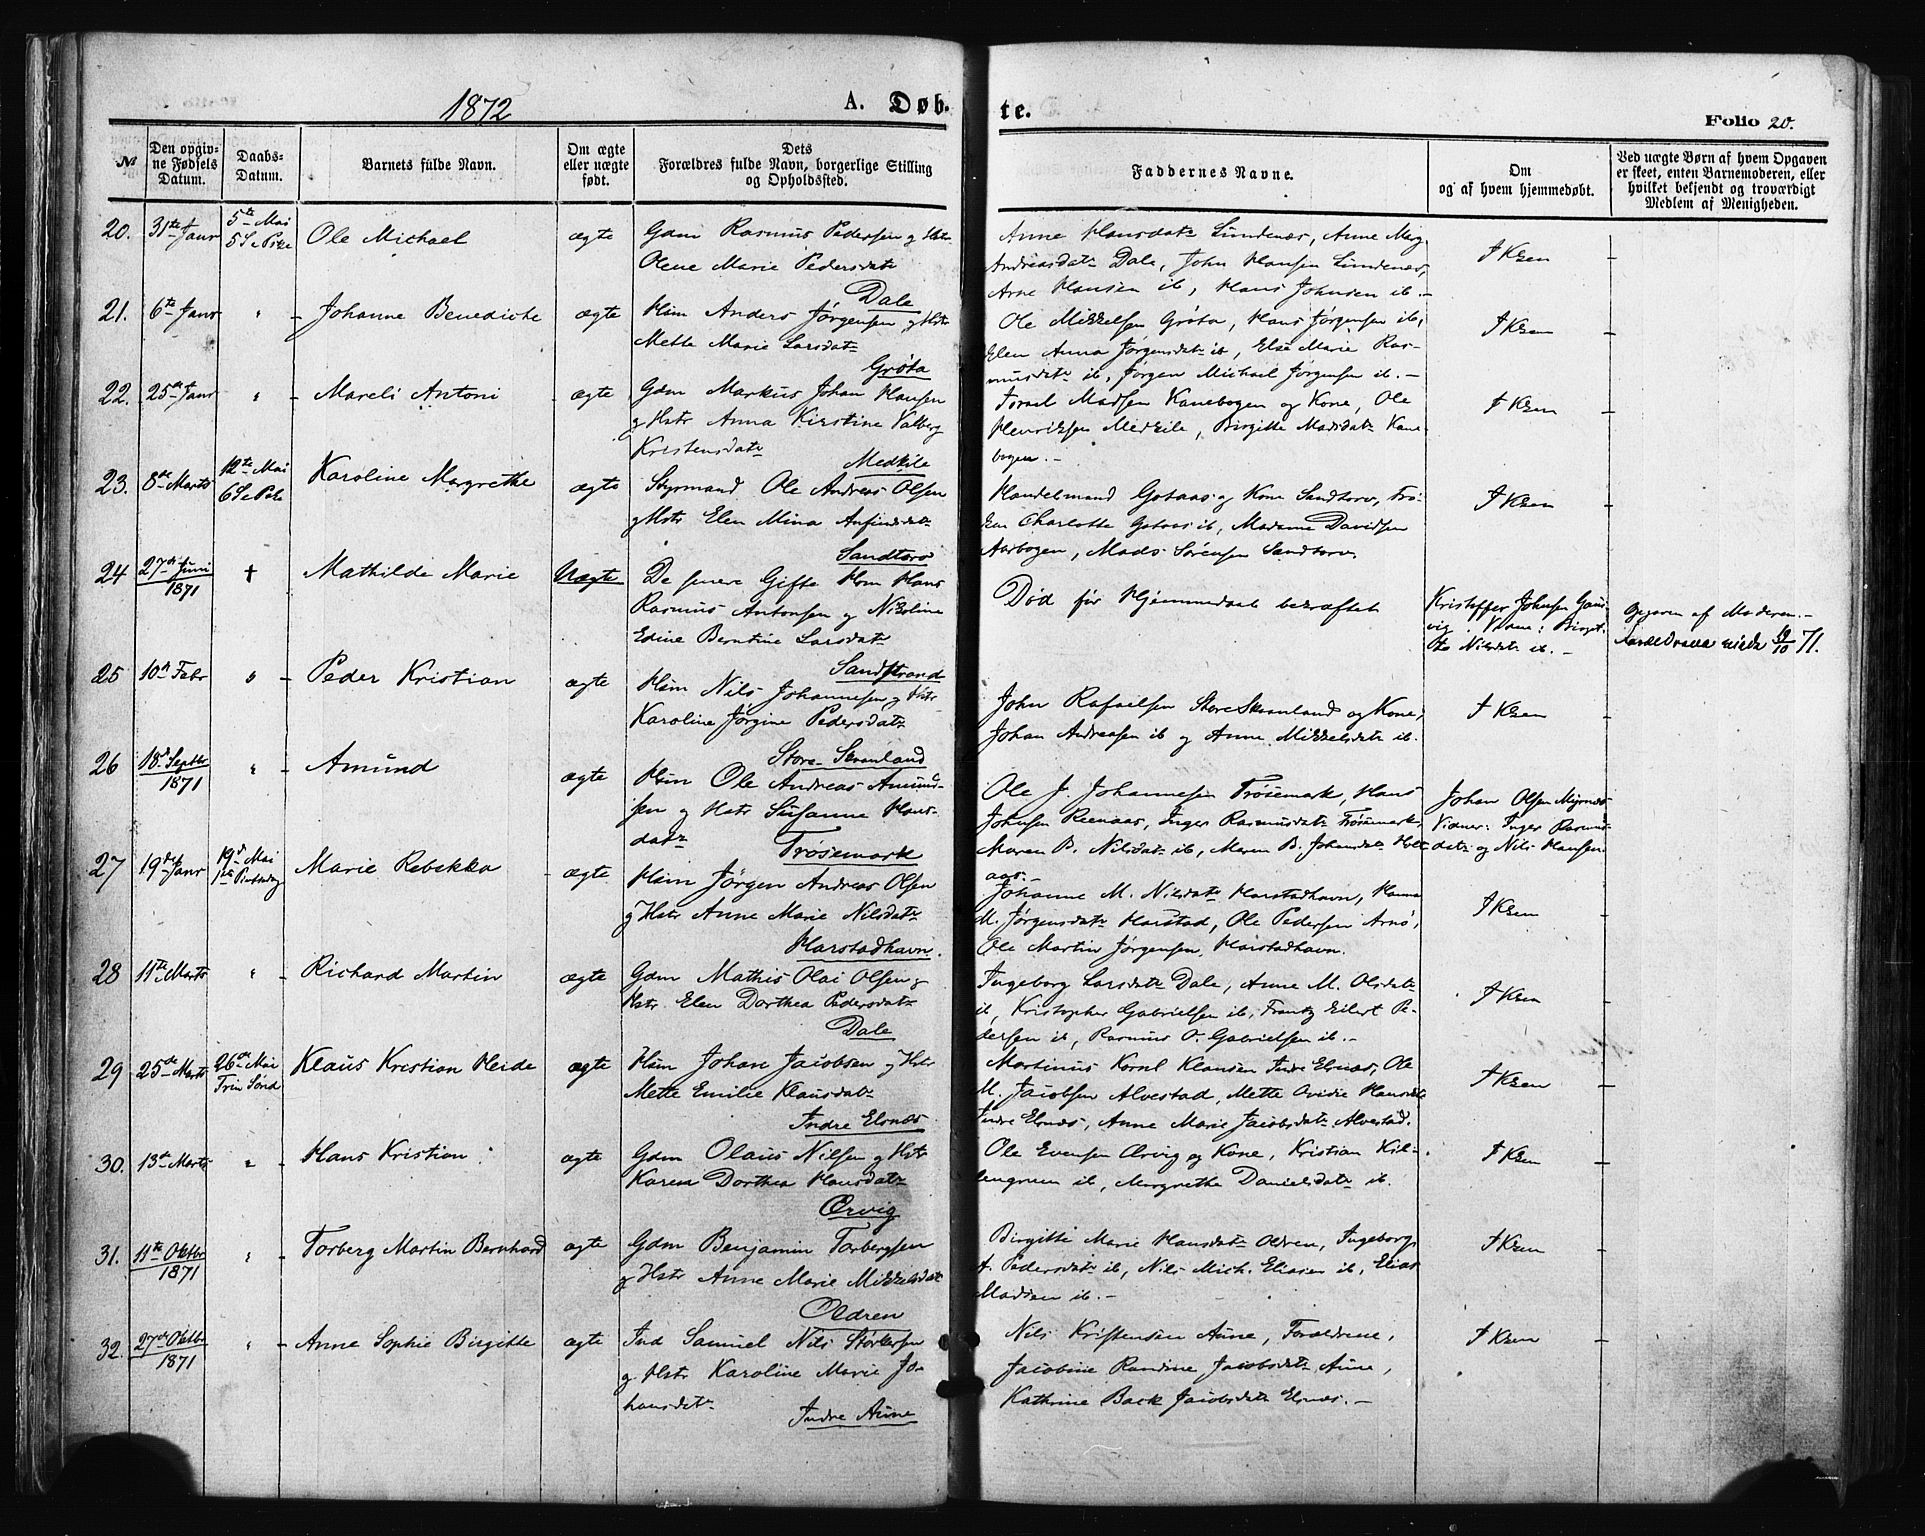 1872
A. Døb.
te.
Folio 20.
№
Den opgivne Fødsels Datum.
Daabs-Datum.
Barnets fulde Navn.
Om ægte eller uægte født.
Dets Forældres fulde Navn, borgerlige Stilling og Opholdssted.
Faddernes Navne.
Om og af hvem hjemmedøbt.
Ved uægte Børn af hvem Opgaven er skeet, enten Barnemoderen, eller hvilket bekjendt og troværdigt Medlem af Menigheden.
20. 31te Janr 5te Mai Ole Michael ægte Gdm Rasmus Pedersen g Hstr
Olene Marie Pedersdatr
Dale
Anne Hansdatr Lundenæs, Anne Marg.
Andreasdatr Dale, John Hansen Lundenæs,
Arne Hansen ib, Hans Johnsen ib. –
I Kken –
21. 6te Janr " – Johanne Benedicte ægte Hsm Anders Jørgensen g Hstr
Mette Marie Larsdatr
Grøta
Ole Mikkelsen Grøta, Hans Jørgensen ib,
Elen Anna Jørgensdatr ib, Else Marie Ras-
musdatr ib, Jørgen Michael Jørgensen ib. –
I Kken –
22. 25de Janr " – Mareli Antoni ægte Gdm Markus Johan Hansen
g Hstr Anna Kirstine Valberg
Kristensdatr
Medkile
Israel Madsen Kanebogen og Kone, Ole
Henriksen Medkile, Birgitte Madsdatr Kane-
bogen. –
I Kken –
23. 8de Marts 12te Mai Karoline Margrethe ægte Styrmand Ole Andreas Olsen
g Hstr Elen Mina Anfindsdatr
Sandtorv
Handelsmand Gotaas og Kone Sandtorv, Frø-
ken Charlotte Gotaas ib, Madame Davidsen
Aarbogen, Mads Sørensen Sandtorv.
I Kken –
24 27de Juni 1871 † Mathilde Marie Uægte De senere Gifte Hsm Hans
Rasmus Antonsen og Nikoline
Edine Berntine Larsdatr
Sandstrand
Død før Hjemmedaab bekræftet
Kristoffer Johnsen Gaus-
vig. Vidne: Birgit-
te Nilsdatr ib. –
Opgaven af Moderen. –
71.
25 10de Febr " – Peder Kristian ægte Hsm Nils Johannesen g Hstr
Karoline Jørgine Pedersdatr
Store-Skranland
John Rafaelsen Store Skranland og Kone,
Johan Andreassen ib g Anne Mikkelsdatr ib.
I Kken –
26 18de Septbr 1871 " – Amund ægte Hsm Ole Andreas Amund-
sen g Hstr Susanne Hans-
datr Trøsemark
Ole J. Johannesen Trøsemark, Hans
Johnsen Reenaas, Inger Rasmusdatr Trøsemark,
Maren B. Nilsdatr ib, Maren B. Johansdatr Holt-
aas. –
Johan Olsen Myrnæs
Vidner: Inger Rasmus-
datr og Nils Hansen
27 19de Janr 19de Mai 1ste Pintsedag Marie Rebekka – ægte Hsm Jørgen Andreas Olsen
g Hstr Anne Marie Nilsdatr
Harstadhavn.
Johanne M. Nilsdatr Harstadhavn, Hanna
M. Jørgensdatr Harstad, Ole Pedersen Arnø,
Ole Martin Jørgensen, Harstadhavn.
I Kken –
28 11te Marts " – Richard Martin ægte Gdm Mathis Olai Olsen g
Hstr Elen Dorthea Pedersdatr
Dale
Ingeborg Larsdatr Dale, Anne M. Olsdatr
ib, Kristopher Gabrielsen ib, Frantz Eilert Pe-
dersen ib, Rasmus O. Gabrielsen ib. –
I Kken –
29 25de Marts 26de Mai Trin Sønd Klaus Kristian Heide ægte Hsm Johan Jacobsen g Hstr
Mette Emilie Klausdatr
Indre Elsnæs
Martinus Kornl Klausen Indre Elsnæs, Ole
M. Jacobsen Alvestad, Mette Ovidie Hansdatr
Indre Elsnæs, Anne Marie Jacobsdatr Alvestad.
I Kken –
30. 13de Marts " – Hans Kristian ægte Gdm Olaus Nilsen g Hstr
Karen Dorthea Hansdatr
Ørvig
Ole Evensen Ørvig og Kone, Kristian Kil-
lengreen ib, Margrethe Danielsdatr ib.
I Kken –
31. 11te Oktbr 1871 " – Torberg Martin Bernhard ægte Gdm Benjamin Torbergsen
g Hstr Anne Marie Mikkelsdatr
Oldren
Birgitte Marie Hansdatr Oldren, Ingeborg
A. Pedersdatr ib, Nils Mich. Eliasen ib, Elias
Madsen ib. –
I Kken –
32. 27de Oktbr 1871 " – Anne Sophie Birgitte ægte Ind Samuel Nils Størkersen
g Hstr Karoline Marie Jo-
hansdatr
Indre Aune
Nils Kristensen Aune, Forældrene,
Jacobine Randine Jacobsdatr Aune,
Kathrine Back Jacobsdatr Elsnæs. –
I Kken –